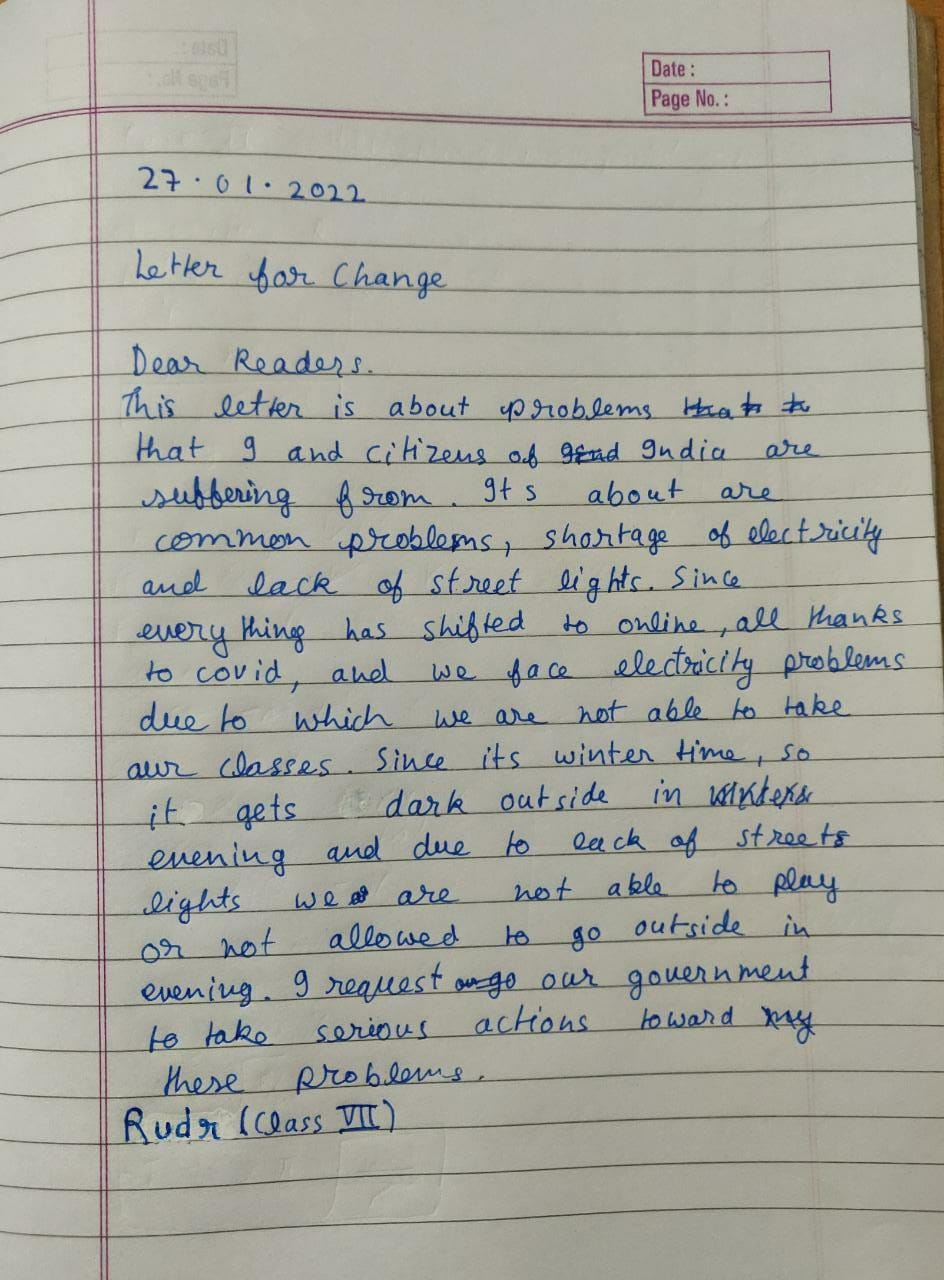 Date :
Page No. :
27.01.2022
Letter for Change
Dear Readers.
This letter is about problems
that I and citizens of India are
suffering from. Its about are
common problems, shortage of electricity
and lack of street lights. Since
every thing has shifted to online, all thanks
to covid, and we face electricity problems
due to which we are not able to take
our classes. Since its winter time, so
it gets dark outside in
evening and due to lack of streets
lights we are not able to play
or not allowed to go outside in
evening. I request our government
to take serious actions toward
these problems.
Rudr (Class VII)